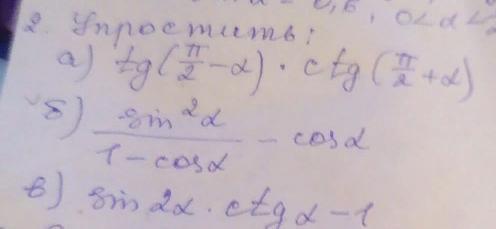 α = 0,6, 0 < α <
2. Упростить:
а) tg(π/2 - α) · ctg(π/2 + α)
б) sin²α / (1 - cosα) - cosα
в) sin 2α · ctg α - 1